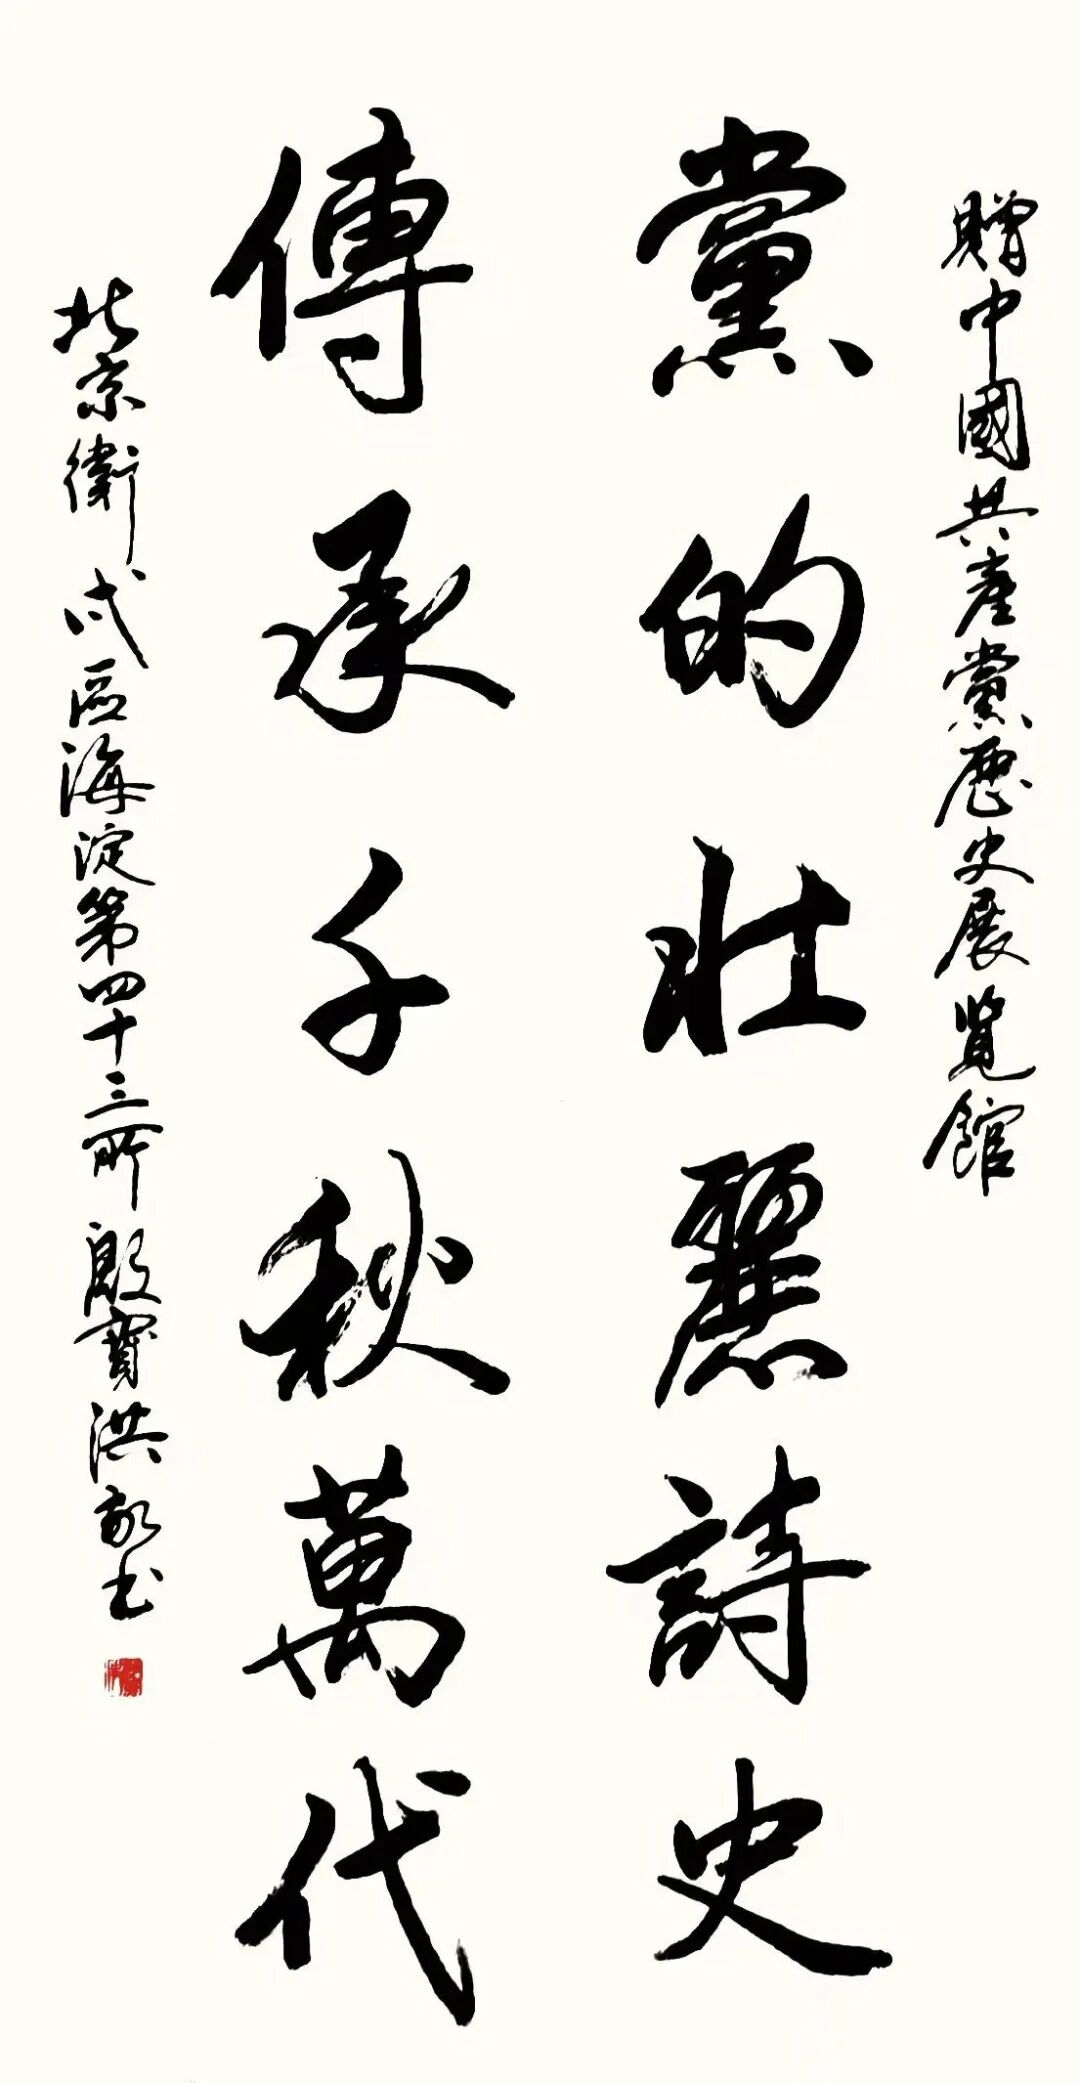 贈中國共產黨歷史展覽館
黨的壯麗詩史
傳承千秋萬代
北京衛戍區海淀第四十三所殷寶洪敬书